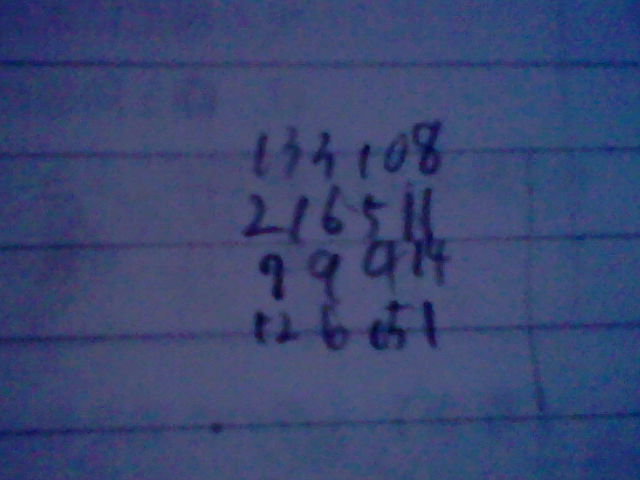 133,108
216511
99914
126151